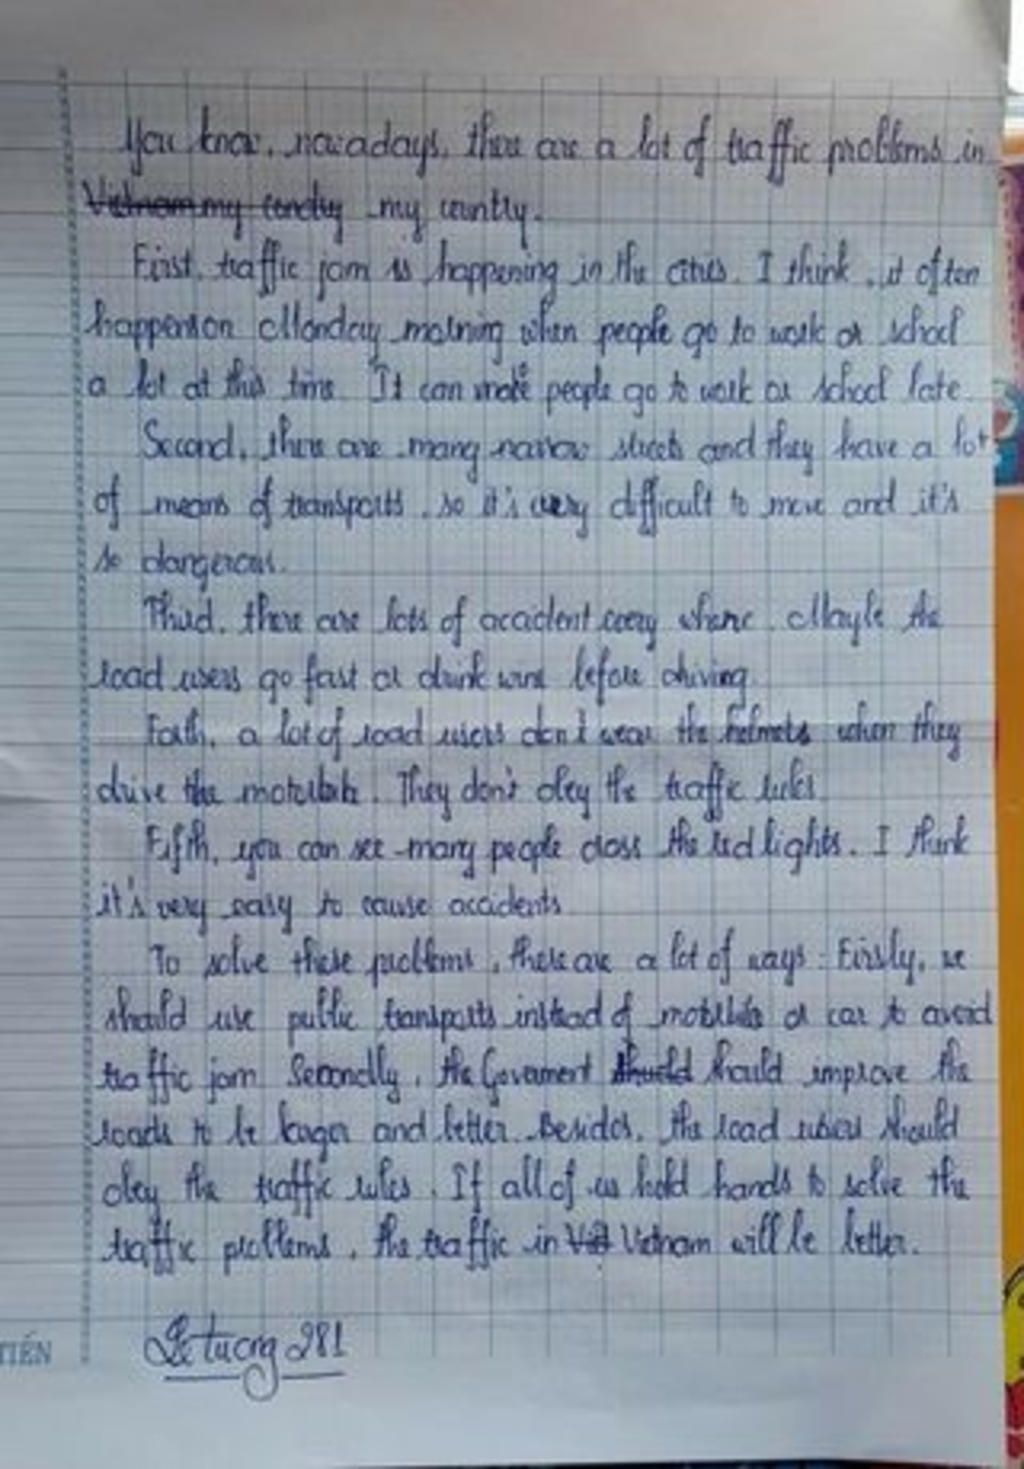 You know, nowadays, there are a lot of traffic problems in
my country.
First, traffic jam is happening in the cities. I think, it often
happen on Monday morning when people go to work or school
a lot at this time. It can make people go to work or school late.
Second, there are many narrow streets and they have a lot
of means of transports, so it's very difficult to move and it's
so dangerous.
Third, there are lots of accident every where. Maybe the
road users go fast or drink wine before driving.
Forth, a lot of road users don't wear the helmets when they
drive the motorbike. They don't obey the traffic rules.
Fifth, you can see many people cross the red lights. I think
it's very easy to cause accidents
To solve these problems, there are a lot of ways: Firstly, we
should use public transports instead of motorbike or car to avoid
traffic jam. Secondly, the Goverment should improve the
roads to be larger and better. Besides, the road users should
obey the traffic rules. If all of us hold hands to solve the
traffic problems, the traffic in Vietnam will be better.
281
TIẾN